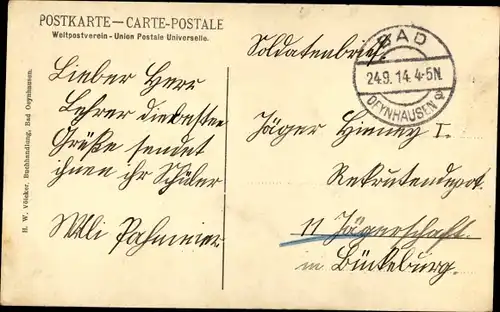 POSTKARTE — CARTE-POSTALE
Weltpostverein - Union Postale Universelle.
H. W. Völcker, Buchhandlung, Bad Oeynhausen.
Lieber Herr
Lehrer die besten
Grüße sendet
ihnen ihr Schüler
Willi Pahmeier
Soldatenbrief.
BAD
24.9.14. 4-5N.
OEYNHAUSEN a
Jäger I.
Rekrutendepot.
11 Jägerschaft.
in Bückeburg.